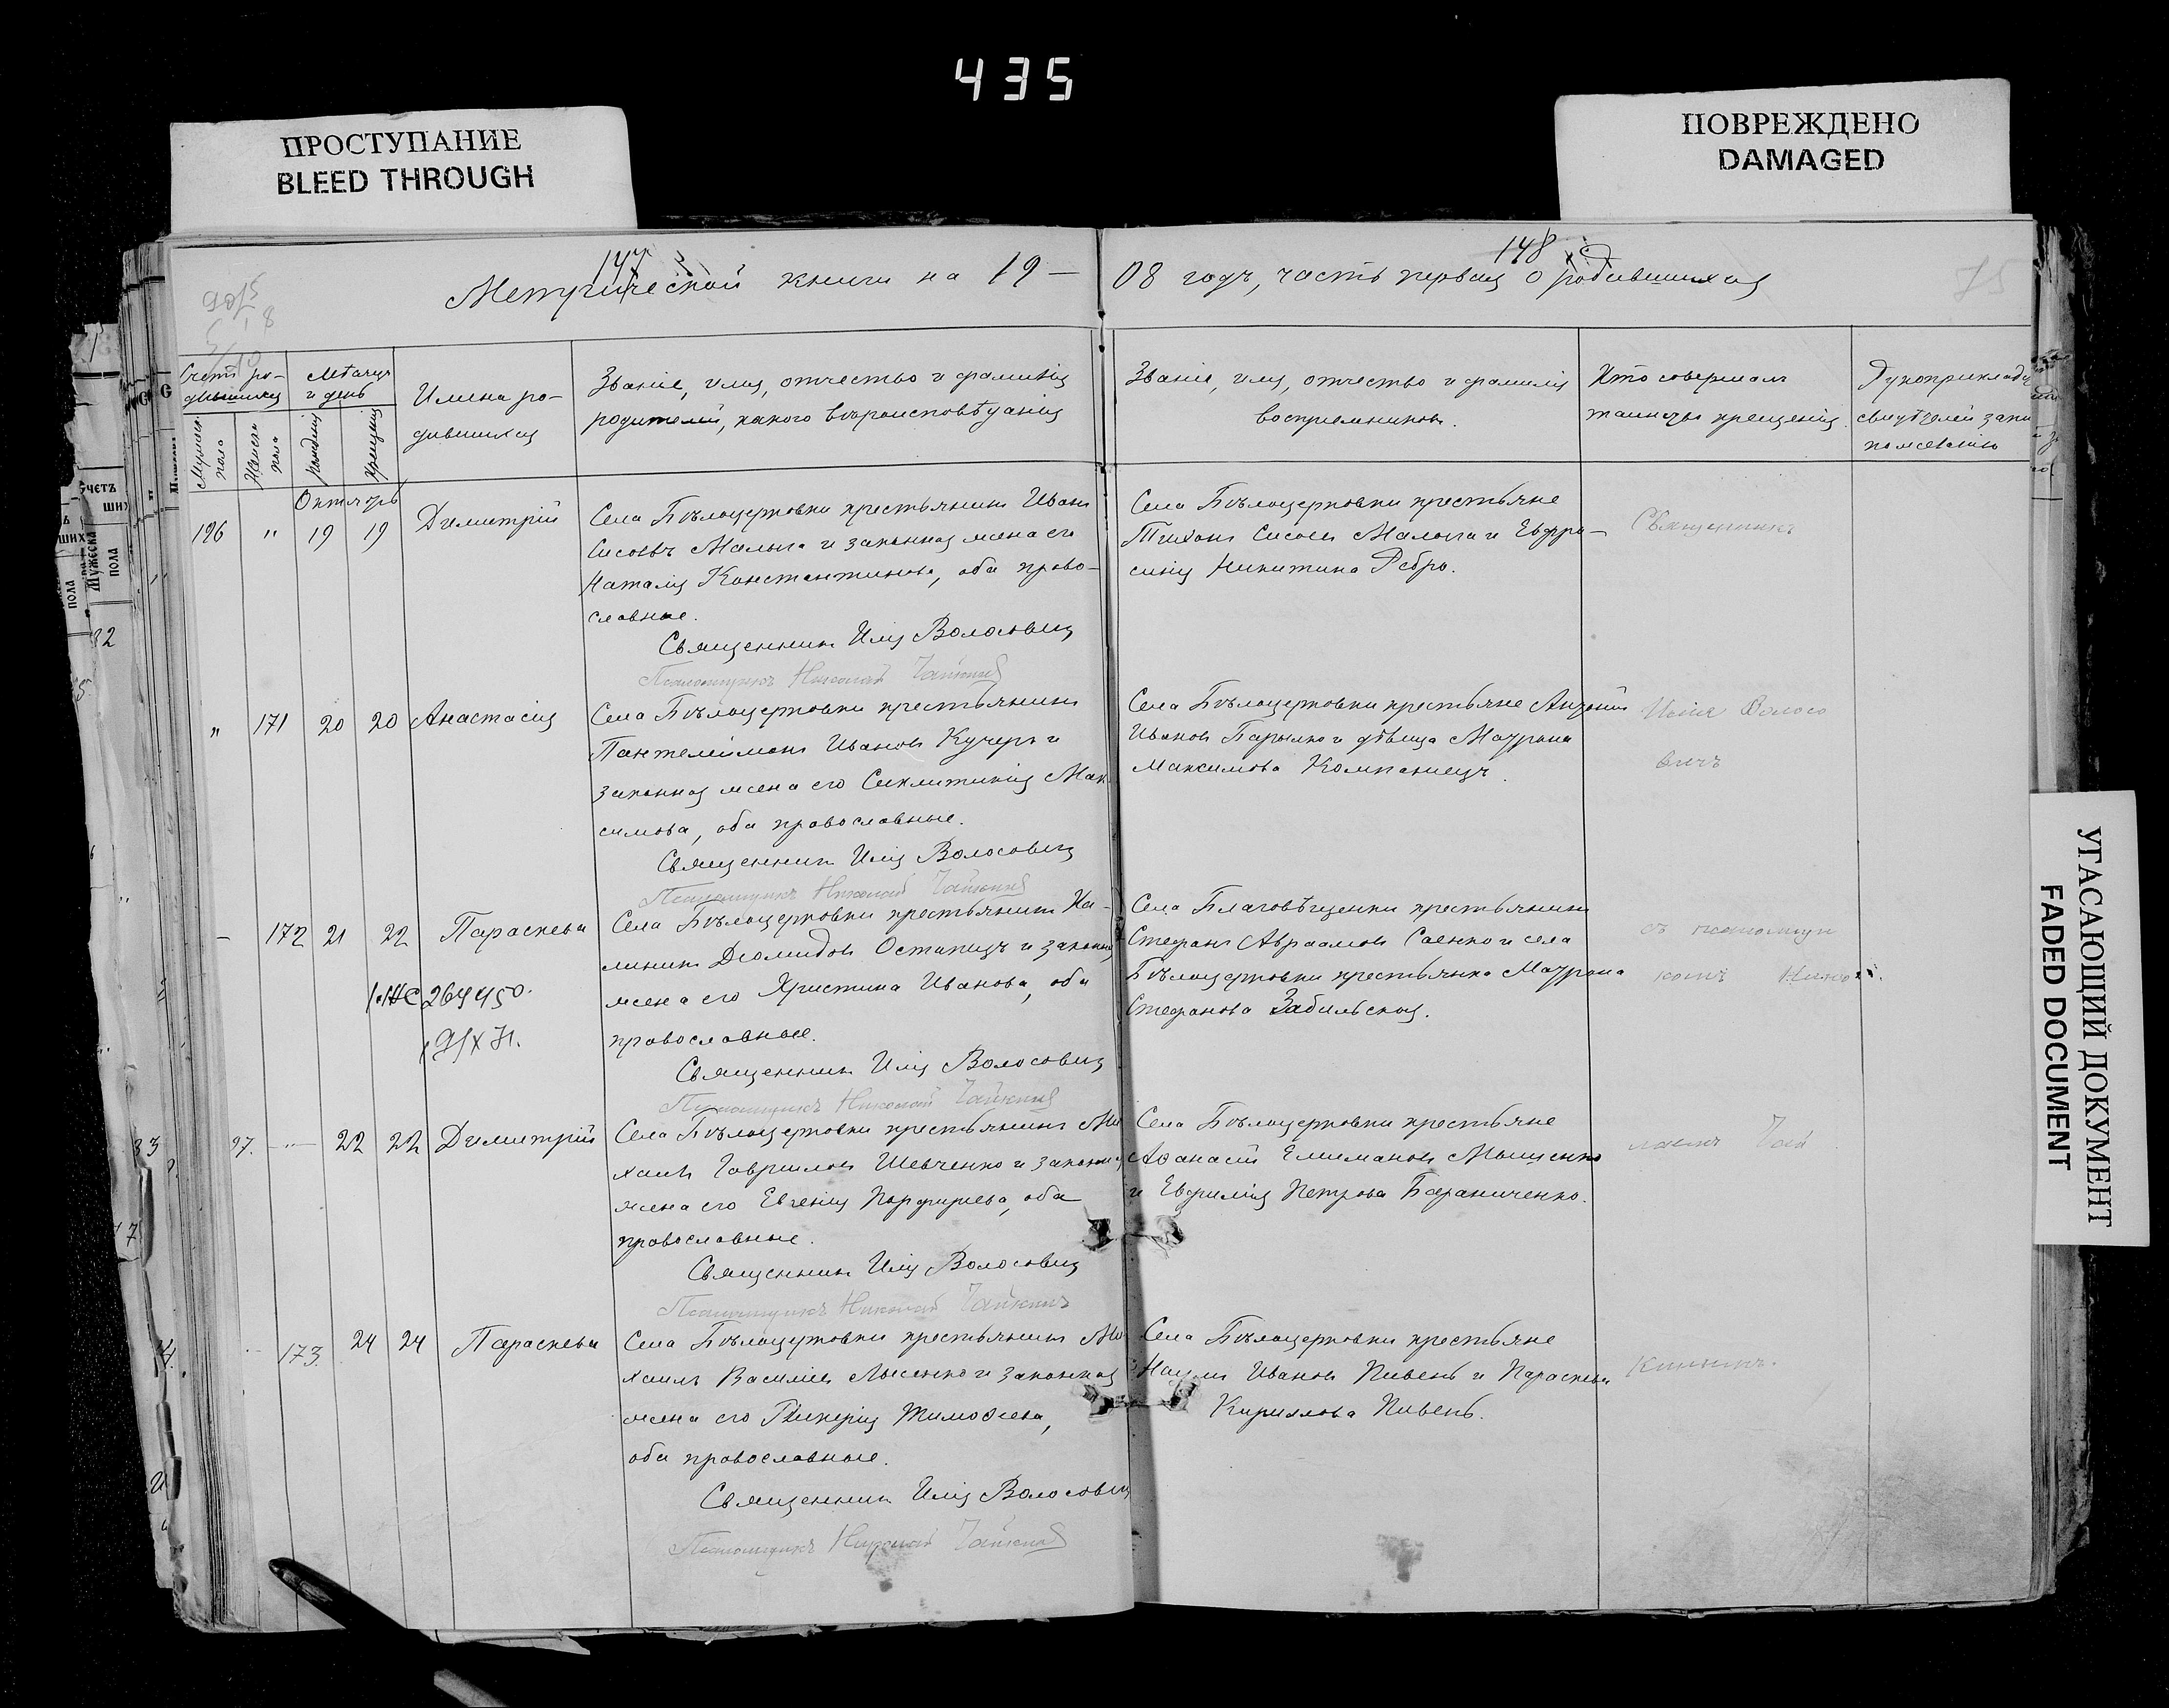 435
ПРОСТУПАНИЕ
BLEED THROUGH
ПОВРЕЖДЕНО
DAMAGED
147
148
Метрической книги на 19— 08 годъ, часть первая о родившихся
Счетъ ро-
дившихся
Мужеска
пола
Женска
пола
Мѣсяцъ
и день
Рожденія
Крещенія
Имена ро-
дившихся
Званіе, имя, отчество и фамилія
родителей, какого вѣроисповѣданія
Званіе, имя, отчество и фамилія
воспріемниковъ.
Кто совершалъ
таинство крещенія
Рукоприклад
свидѣтелей записи
по желанію
Октябрь
196 " 19 19 Димитрій
Села Бѣлоцерковки крестьянинъ Иванъ
Сисоевъ Малыга и законная жена его
Наталія Константинова, оба право-
славные.
Священникъ Илія Волосовичъ
Псаломщикъ Николай Чайкинъ
Села Бѣлоцерковки крестьяне
Тихонъ Сисоевъ Малыга и Евфро-
синія Никитина Ребро.
Священникъ
" 171 20 20 Анастасія
Села Бѣлоцерковки крестьянинъ
Пантелеимонъ Ивановъ Кучеръ и
законная жена его Синклитикія Мак
симова, оба православные.
Священникъ Илія Волосовичъ
Псаломщикъ Николай Чайкинъ
Села Бѣлоцерковки крестьяне Антоній
Ивановъ Парылко и дѣвица Матрона
Максимова Компаниецъ.
Илія Волосо
вичъ
– 172 21 22 Параскева
Села Бѣлоцерковки крестьянинъ Ка-
линикъ Діомидовъ Остапецъ и законная
жена его Христина Иванова, оба
православные.
Священникъ Илія Волосовичъ
Псаломщикъ Николай Чайкинъ
264450
Села Благовѣщенки крестьянинъ
Стефанъ Авраамовъ Саенко и села
Бѣлоцерковки крестьянка Матрона
Стефанова Забильская.
съ псаломщи
комъ Нико
97. " 22 22 Димитрій
Села Бѣлоцерковки крестьянинъ Ми
хаилъ Гавриловъ Шевченко и законная
жена его Евгенія Порфирьева, оба
православные.
Священникъ Илія Волосовичъ
Псаломщикъ Николай Чайкинъ
Села Бѣлоцерковки крестьяне
Аѳанасій Елисановъ Мащенко
и Евфимія Петрова Бараниченко.
лаемъ Чай
173 24 24 Параскева
Села Бѣлоцерковки крестьянинъ Ми
хаилъ Василіевъ Лысенко и законная
жена его Гликерія Тимоѳеева,
оба православные.
Священникъ Илія Волосовичъ
Псаломщикъ Николай Чайкинъ
Села Бѣлоцерковки крестьяне
Наумъ Ивановъ Пивень и Параскева
Кириллова Пивень.
кинымъ.
УГАСАЮЩИЙ ДОКУМЕНТ
FADED DOCUMENT